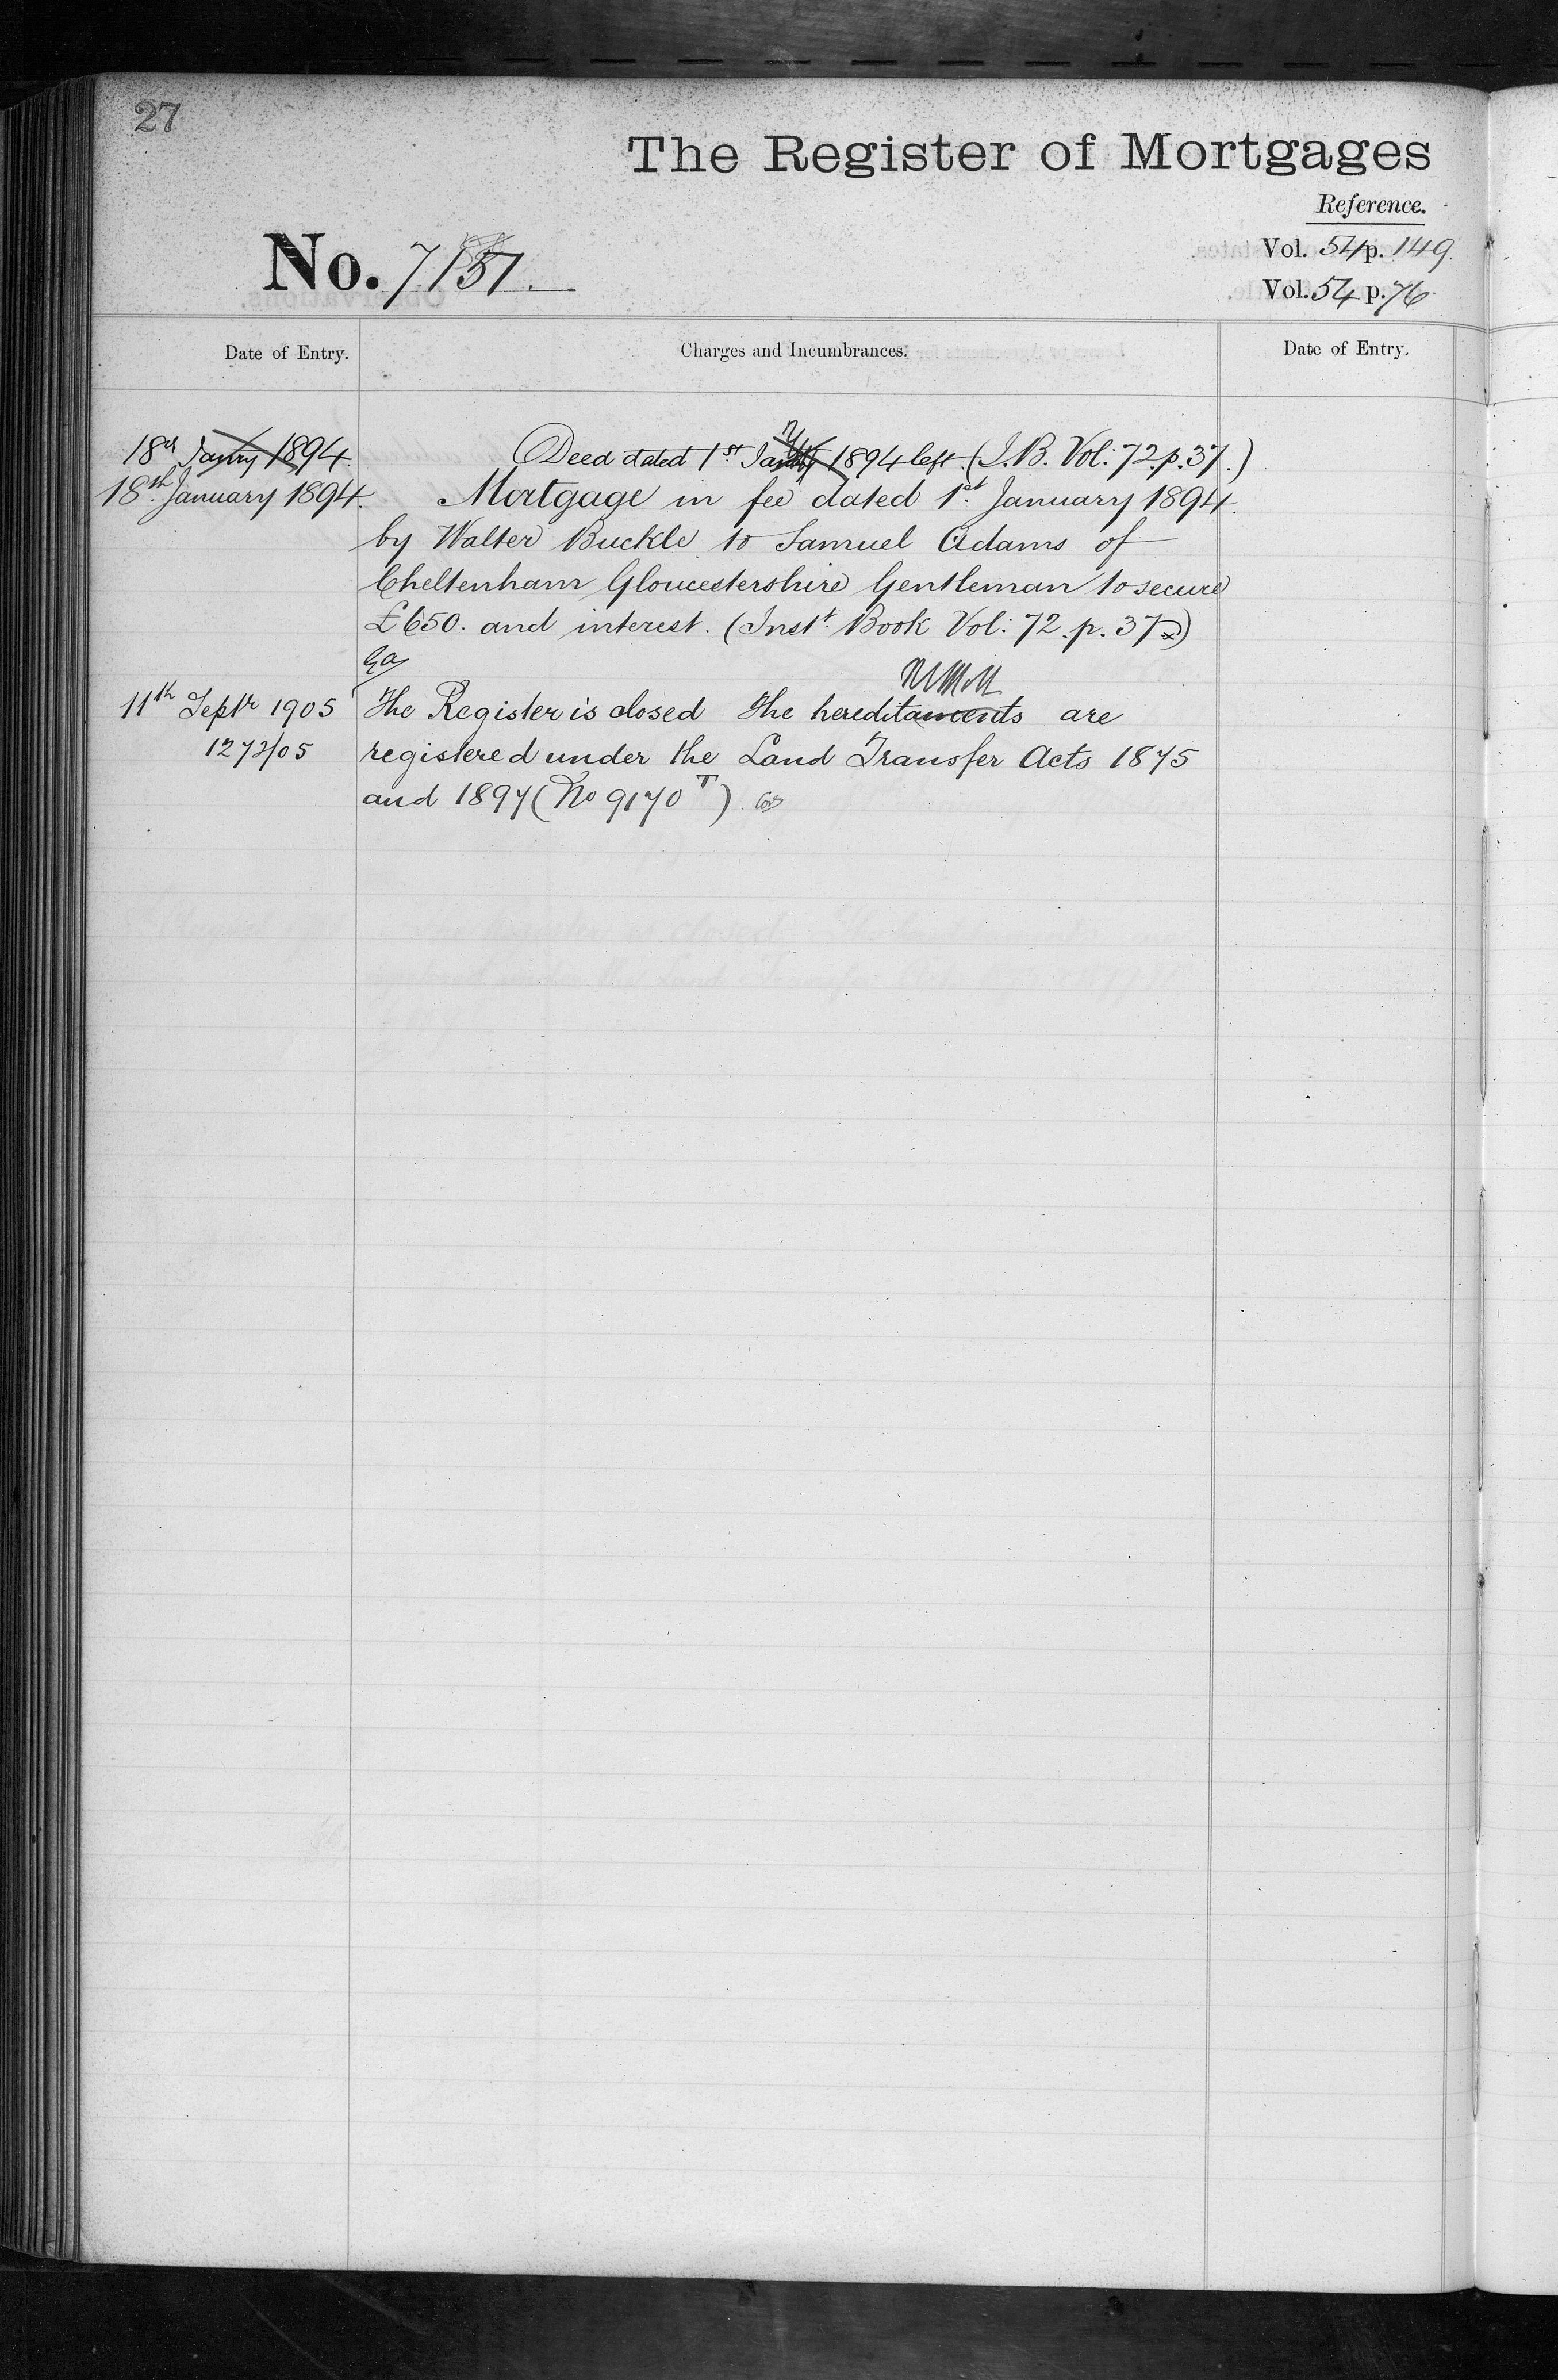 27
The Register of Mortgages
Reference.
No. 7151.
Vol. 54 p. 149.
Vol. 54 p. 76
Date of Entry.
Charges and Incumbrances.
Date of Entry.
18th Janry 1894. Deed dated 1st 1894 left. (I.B. Vol: 72. p. 37.)
18th January 1894. Mortgage in fee dated 1st January 1894.
by Walter Buckle to Samuel Adams of
Cheltenham Gloucestershire Gentleman to secure
£650. and interest. (Instt. Book Vol: 72. p. 37)
11th Septr 1905 The Register is closed The hereditaments are
1272/05 registered under the Land Transfer Acts 1875
and 1897 (No 9170 T)